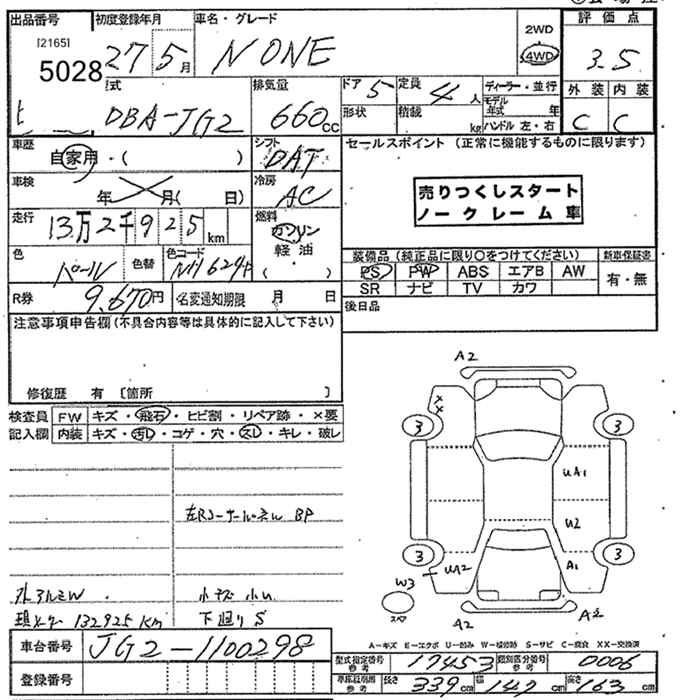 出品番号 初度登録年月 車名・グレード 2WD 評価点
[2165]
5028 27年 5月 N ONE 4WD 3.5
式 排気量 ドア 5 定員 4人 ディーラー・並行 外装 内装
DBA-JG2 660cc 形状 積載 kg モデル年式 年 C C
ハンドル 左・右
車歴 自家用・( ) シフト DAT セールスポイント (正常に機能するものに限ります)
車検 年 月( 日) 冷房 AC
売りつくしスタート
ノークレーム車
走行 13万2千925km 燃料 ガソリン
軽油
( )
色 パール 色替 色コード NH624P
装備品 (純正品に限り○をつけてください) 新車保証書
PS PW ABS エアB AW 有・無
SR ナビ TV カワ
R券 9,670円 名変通知期限 月 日 後日品
注意事項申告欄(不具合内容等は具体的に記入して下さい)
修復歴 有 〔箇所 〕
検査員 FW キズ・飛石・ヒビ割・リペア跡・×要
記入欄 内装 キズ・汚レ・コゲ・穴・スレ・キレ・破レ
A2
3 3
UA1
左Rコーナーパネル BP
U2
3 3
UA2 A1
W3
外アルミW 小キズ 小U
スペア
現メーター 132925Km 下廻りS
A2 A2
A-キズ E-エクボ U-凹み W-補修跡 S-サビ C-腐食 XX-交換済
車台番号 JG2-1100298
型式指定番号 参考 17453 類別区分番号 参考 0006
登録番号
車庫証明用 参考 長さ 339cm 幅 147cm 高さ 163cm